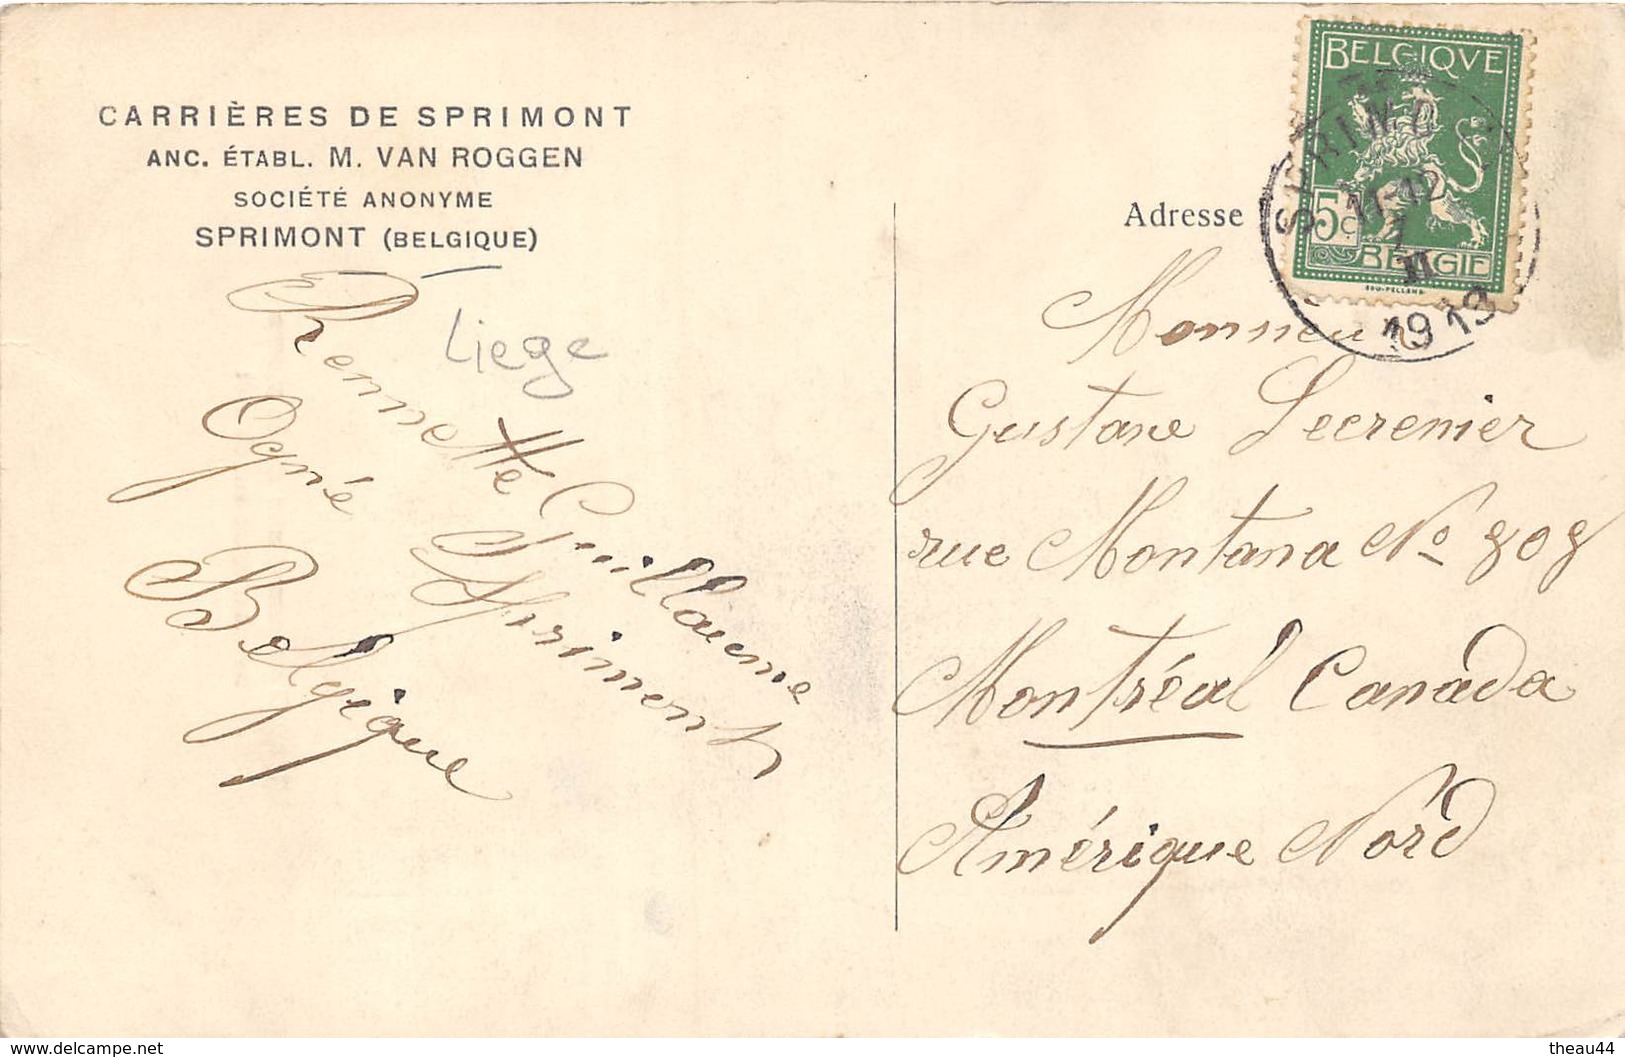 CARRIÈRES DE SPRIMONT
ANC. ÉTABL. M. VAN ROGGEN
SOCIÉTÉ ANONYME
SPRIMONT (BELGIQUE)
Liege
Rennette Guillaume
Ogné Sprimont
Belgique
BELGIQVE
5c
BELGIE
SPRIMO
11-12
7
XI
1913
Adresse
Monsieur
Gustave Lecrenier
rue Montana No 808
Montréal Canada
Amérique Nord
www.delcampe.net
theau44